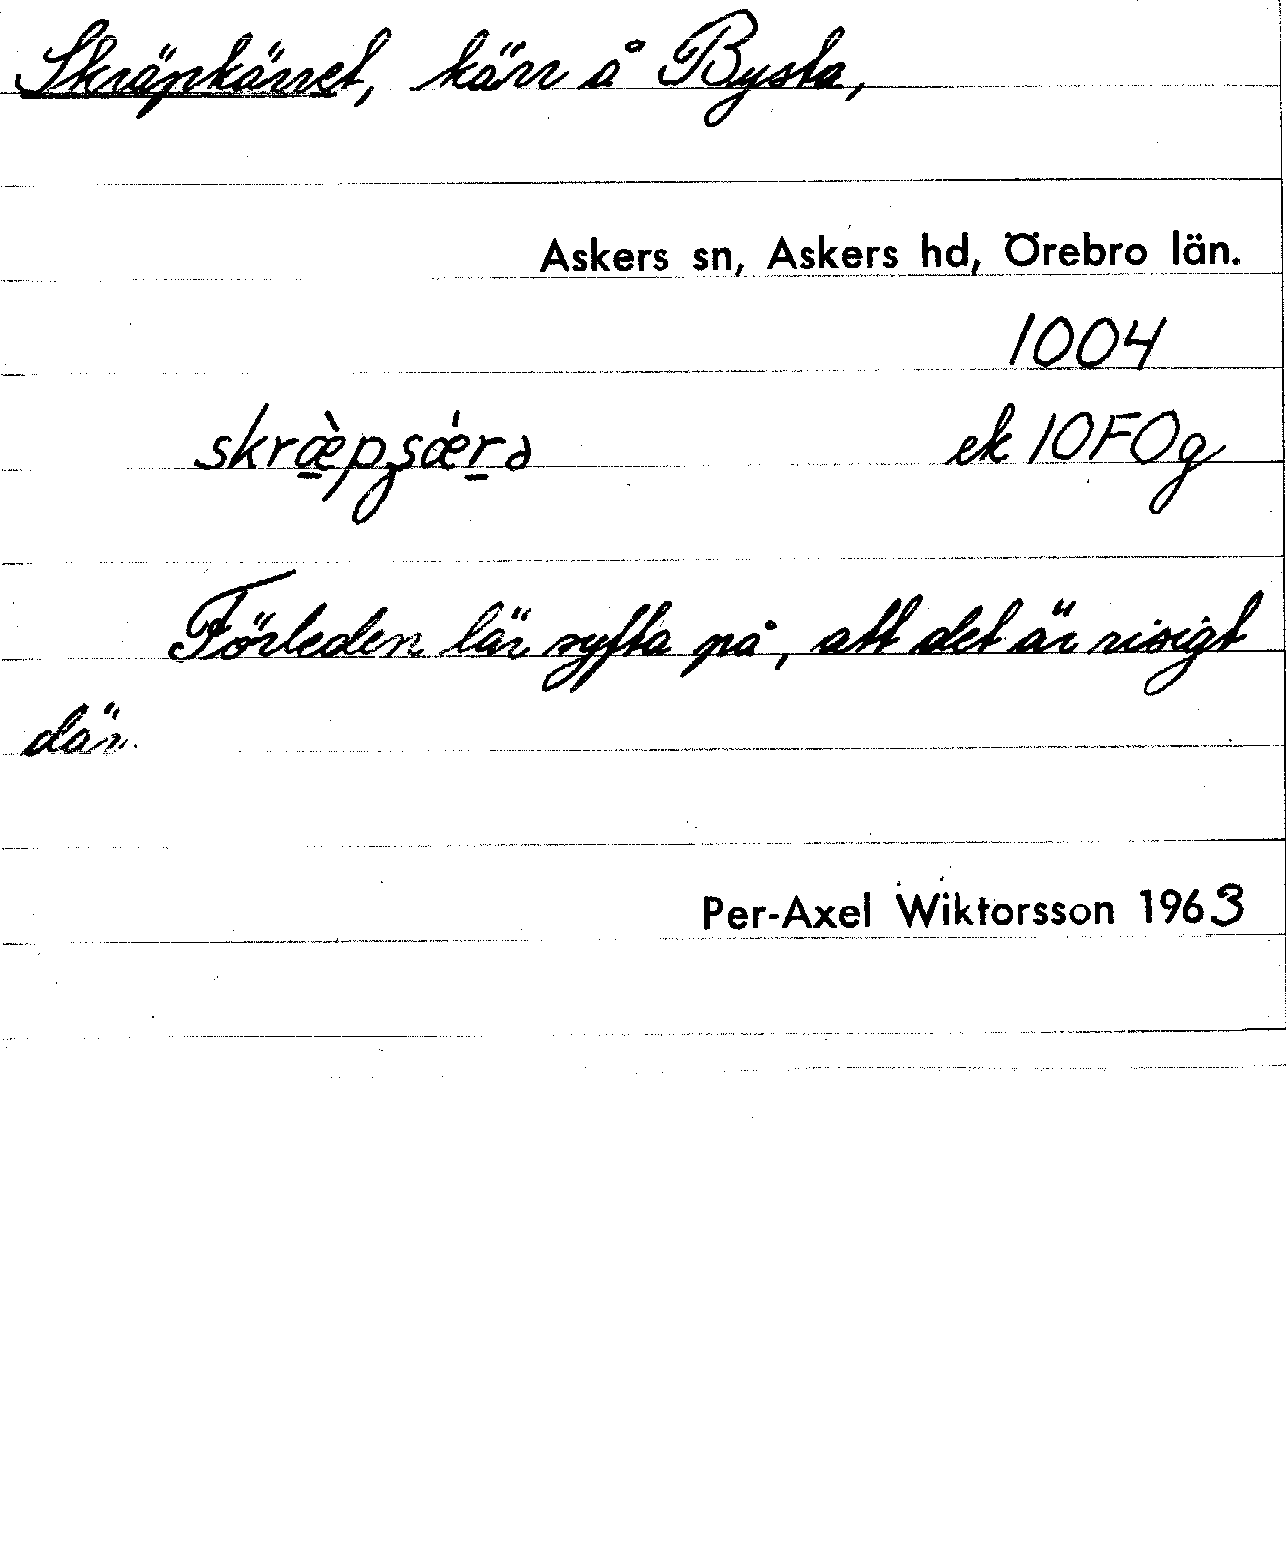 Skräpkärret, kärr å Bysta,
Askers sn, Askers hd, Örebro län.
1004
ek 10F0g
Förleden lär syfta på, att det är risigt
där.
Per-Axel Wiktorsson 1963